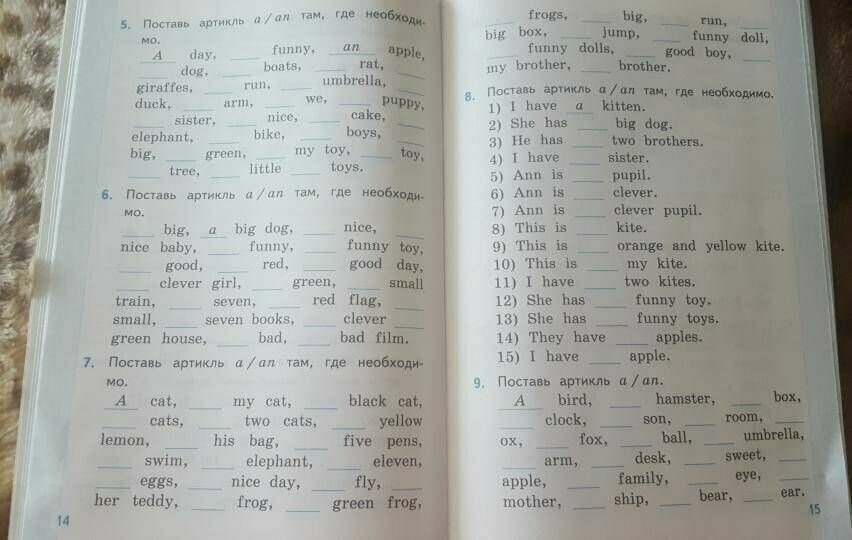 5. Поставь артикль a / an там, где необходи-
мо.
A day, ___ funny, an apple,
___ dog, ___ boats, ___ rat, ___
giraffes, ___ run, ___ umbrella, ___
duck, ___ arm, ___ we, ___ puppy,
___ sister, ___ nice, ___ cake, ___
elephant, ___ bike, ___ boys, ___
big, ___ green, ___ my toy, ___ toy,
___ tree, ___ little ___ toys.
6. Поставь артикль a / an там, где необходи-
мо.
___ big, a big dog, ___ nice, ___
nice baby, ___ funny, ___ funny toy,
___ good, ___ red, ___ good day,
___ clever girl, ___ green, ___ small
train, ___ seven, ___ red flag, ___
small, ___ seven books, ___ clever ___
green house, ___ bad, ___ bad film.
7. Поставь артикль a / an там, где необходи-
мо.
A cat, ___ my cat, ___ black cat,
___ cats, ___ two cats, ___ yellow
lemon, ___ his bag, ___ five pens,
___ swim, ___ elephant, ___ eleven,
___ eggs, ___ nice day, ___ fly, ___
her teddy, ___ frog, ___ green frog,
14
___ frogs, ___ big, ___ run, ___
big box, ___ jump, ___ funny doll,
___ funny dolls, ___ good boy, ___
my brother, ___ brother.
8. Поставь артикль a / an там, где необходимо.
1) I have a kitten.
2) She has ___ big dog.
3) He has ___ two brothers.
4) I have ___ sister.
5) Ann is ___ pupil.
6) Ann is ___ clever.
7) Ann is ___ clever pupil.
8) This is ___ kite.
9) This is ___ orange and yellow kite.
10) This is ___ my kite.
11) I have ___ two kites.
12) She has ___ funny toy.
13) She has ___ funny toys.
14) They have ___ apples.
15) I have ___ apple.
9. Поставь артикль a / an.
A bird, ___ hamster, ___ box,
___ clock, ___ son, ___ room, ___
ox, ___ fox, ___ ball, ___ umbrella,
___ arm, ___ desk, ___ sweet, ___
apple, ___ family, ___ eye, ___
mother, ___ ship, ___ bear, ___ ear.
15